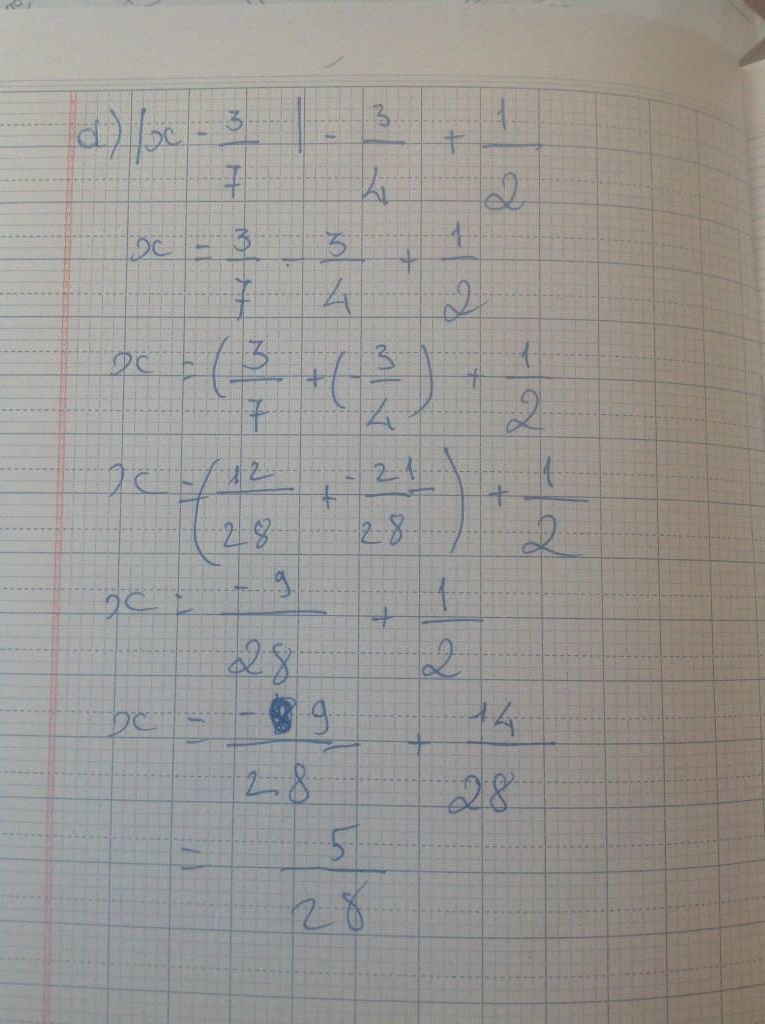 d) |x - 3/7 | - 3/4 + 1/2
x = 3/7 - 3/4 + 1/2
x = (3/7 + (-3/4) + 1/2
x = (12/28 + -21/28) + 1/2
x = -9/28 + 1/2
x = -9/28 + 14/28
= 5/28